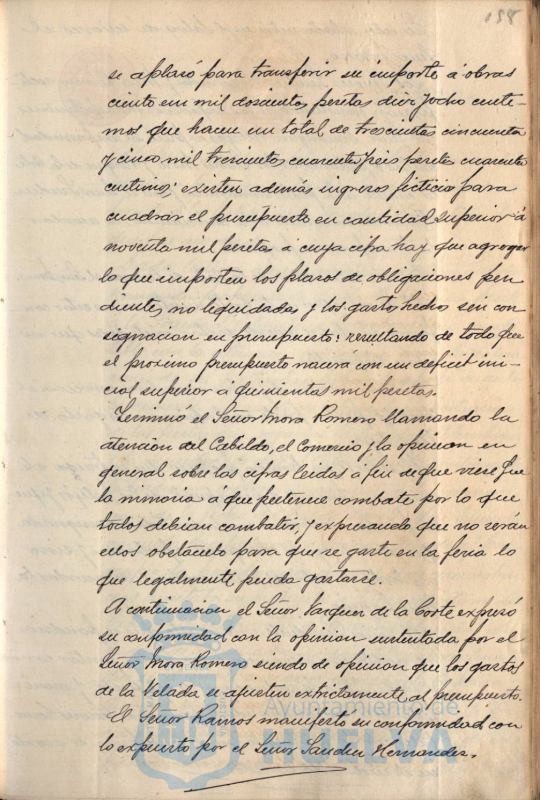 158
se aplasó para transferir su importe á obras
ciento un mil doscientas pesetas diez y ocho centi-
mos que hacen un total de trescientas cincuenta
y cinco mil trescientas cuarenta y seis pesetas cuarenta
centimos; existen además ingresos ficticios para
cuadrar el presupuesto en cantidad superior á
noventa mil pesetas a cuya cifra hay que agregar
lo que importen los plasos de obligaciones pen
dientes, no liquidadas y los gastos hechos sin con
signacion en presupuesto: resultando de todo que
el proximo presupuesto nacerá con un deficit ini-
cial superior á quinientas mil pesetas.
Terminó el Señor Mora Romero llamando la
atencion del Cabildo, el Comercio y la opinion en
general sobre las cifras leidas á fin de que viese que
la minoria a que pertenece combate por lo que
todos debian combatir, y expresando que no serán
ellos obstáculo para que se gaste en la feria lo
que legalmente pueda gastarse.
A continuacion el Señor Vazquez de la Corte expresó
su conformidad con la opinion sustentada por el
Señor Mora Romero siendo de opinion que los gastos
de la Velada se ajusten extrictamente al presupuesto.
El Señor Ramos manifestó su conformidad con
lo expuesto por el Señor Sanchez Hernandez.
Ayuntamiento de
HUELVA